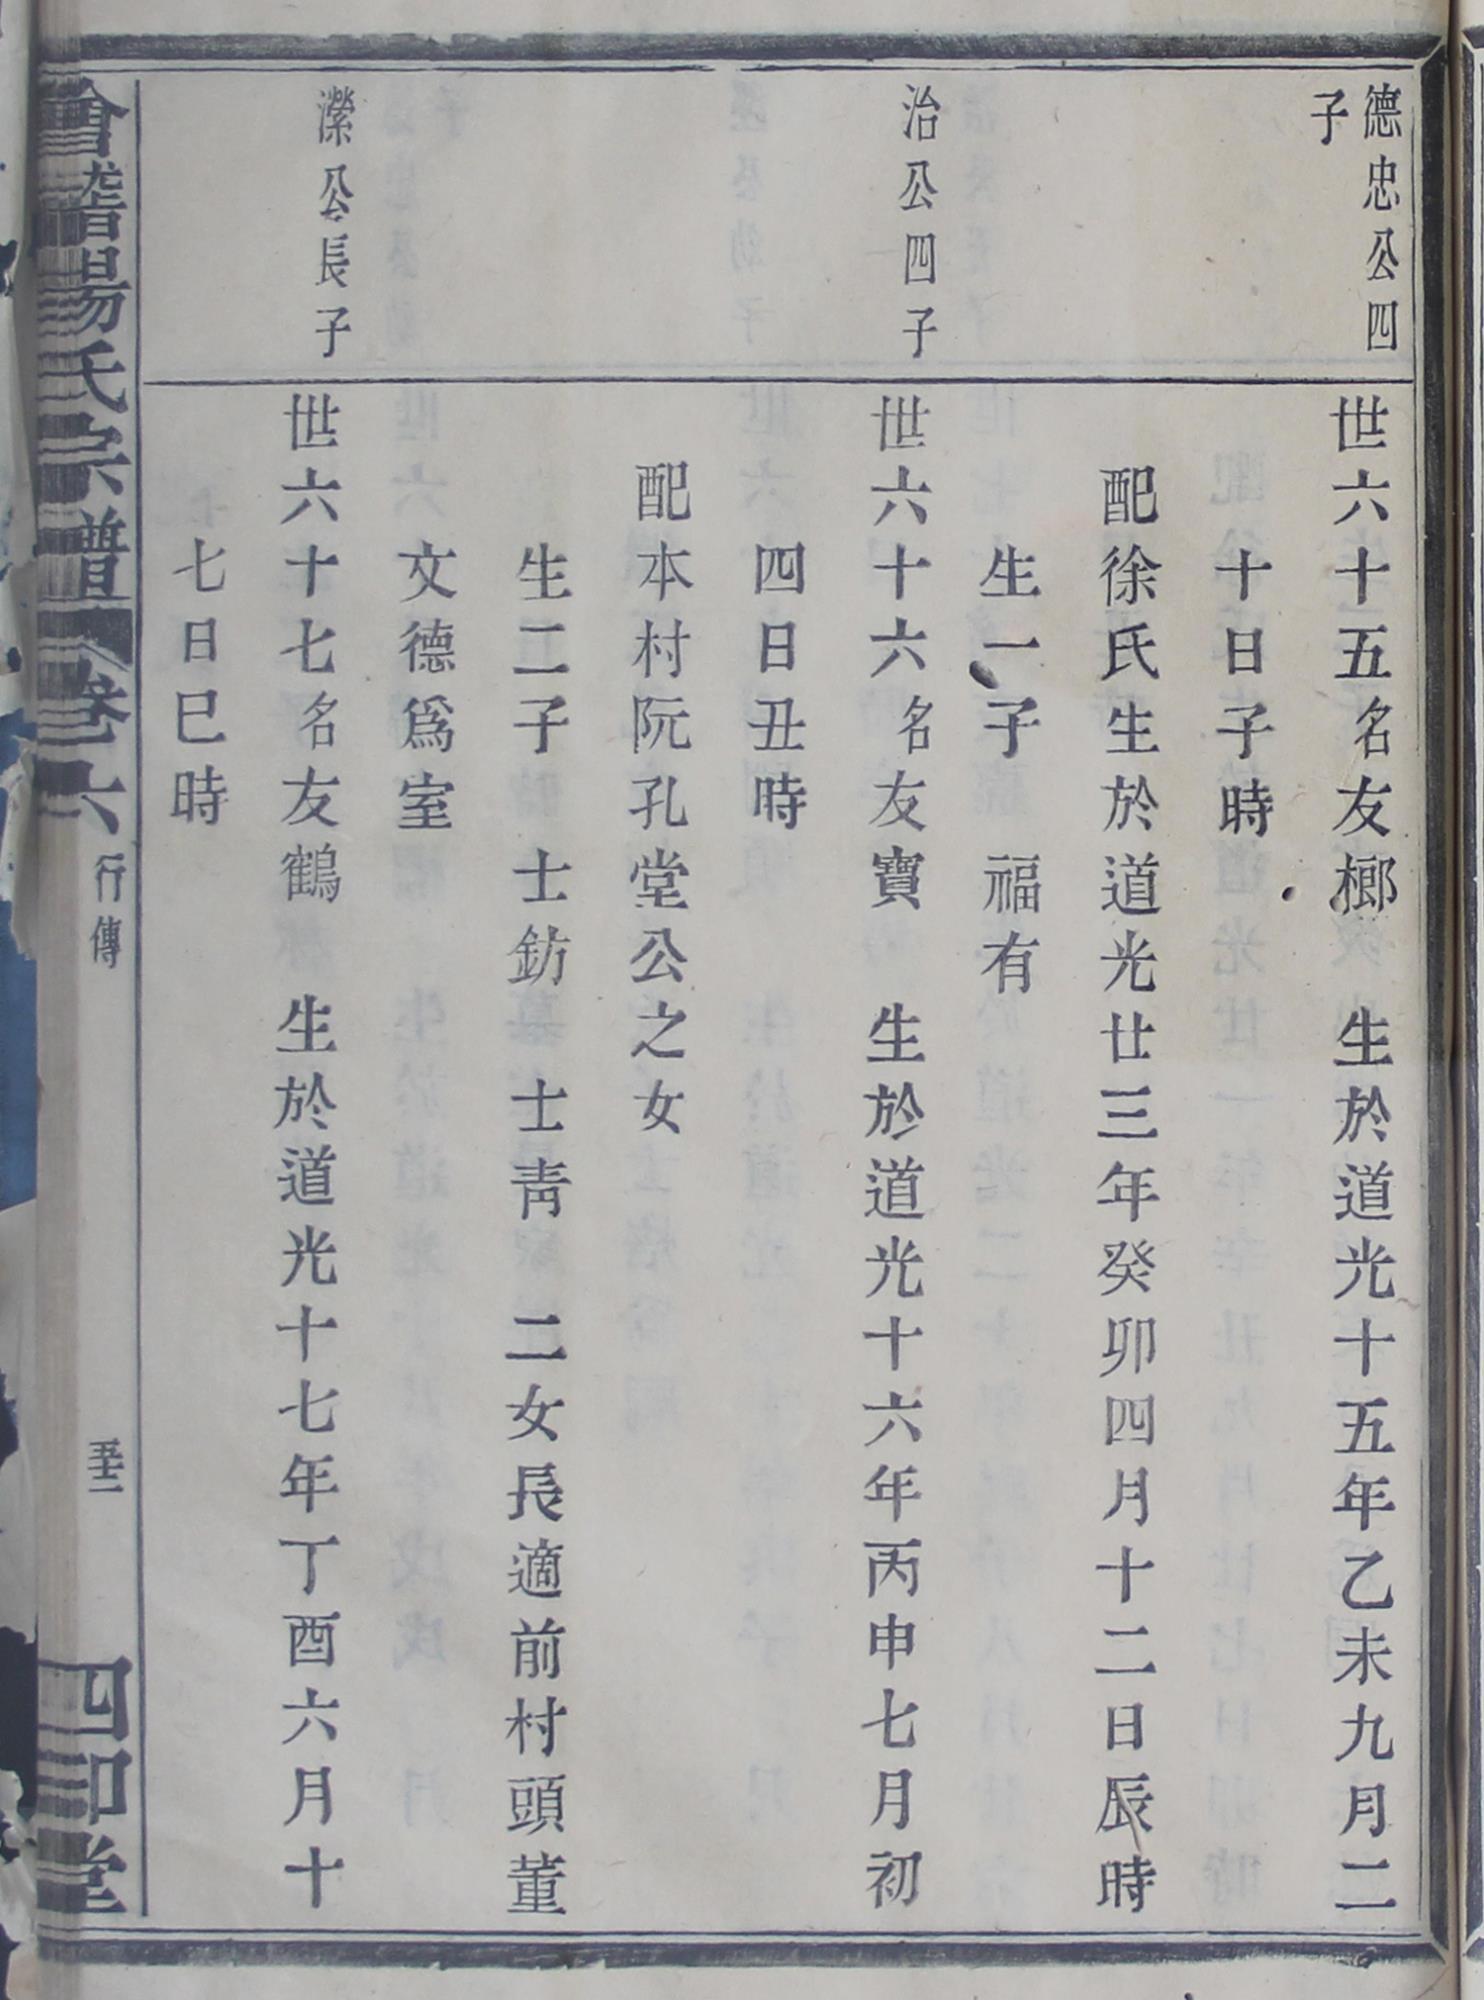 德忠公四
子
世六十五名友榔　生於道光十五年乙未九月二
十日子時
配徐氏生於道光廿三年癸卯四月十二日辰時
生一子　福有
治公四子
世六十六名友寶　生於道光十六年丙申七月初
四日丑時
配本村阮孔堂公之女
生二子　士鈁　士靑　二女長適前村頭董
文德爲室
濴公長子
世六十七名友鶴　生於道光十七年丁酉六月十
七日巳時
會稽陽氏宗譜　卷六　行傳　四印堂